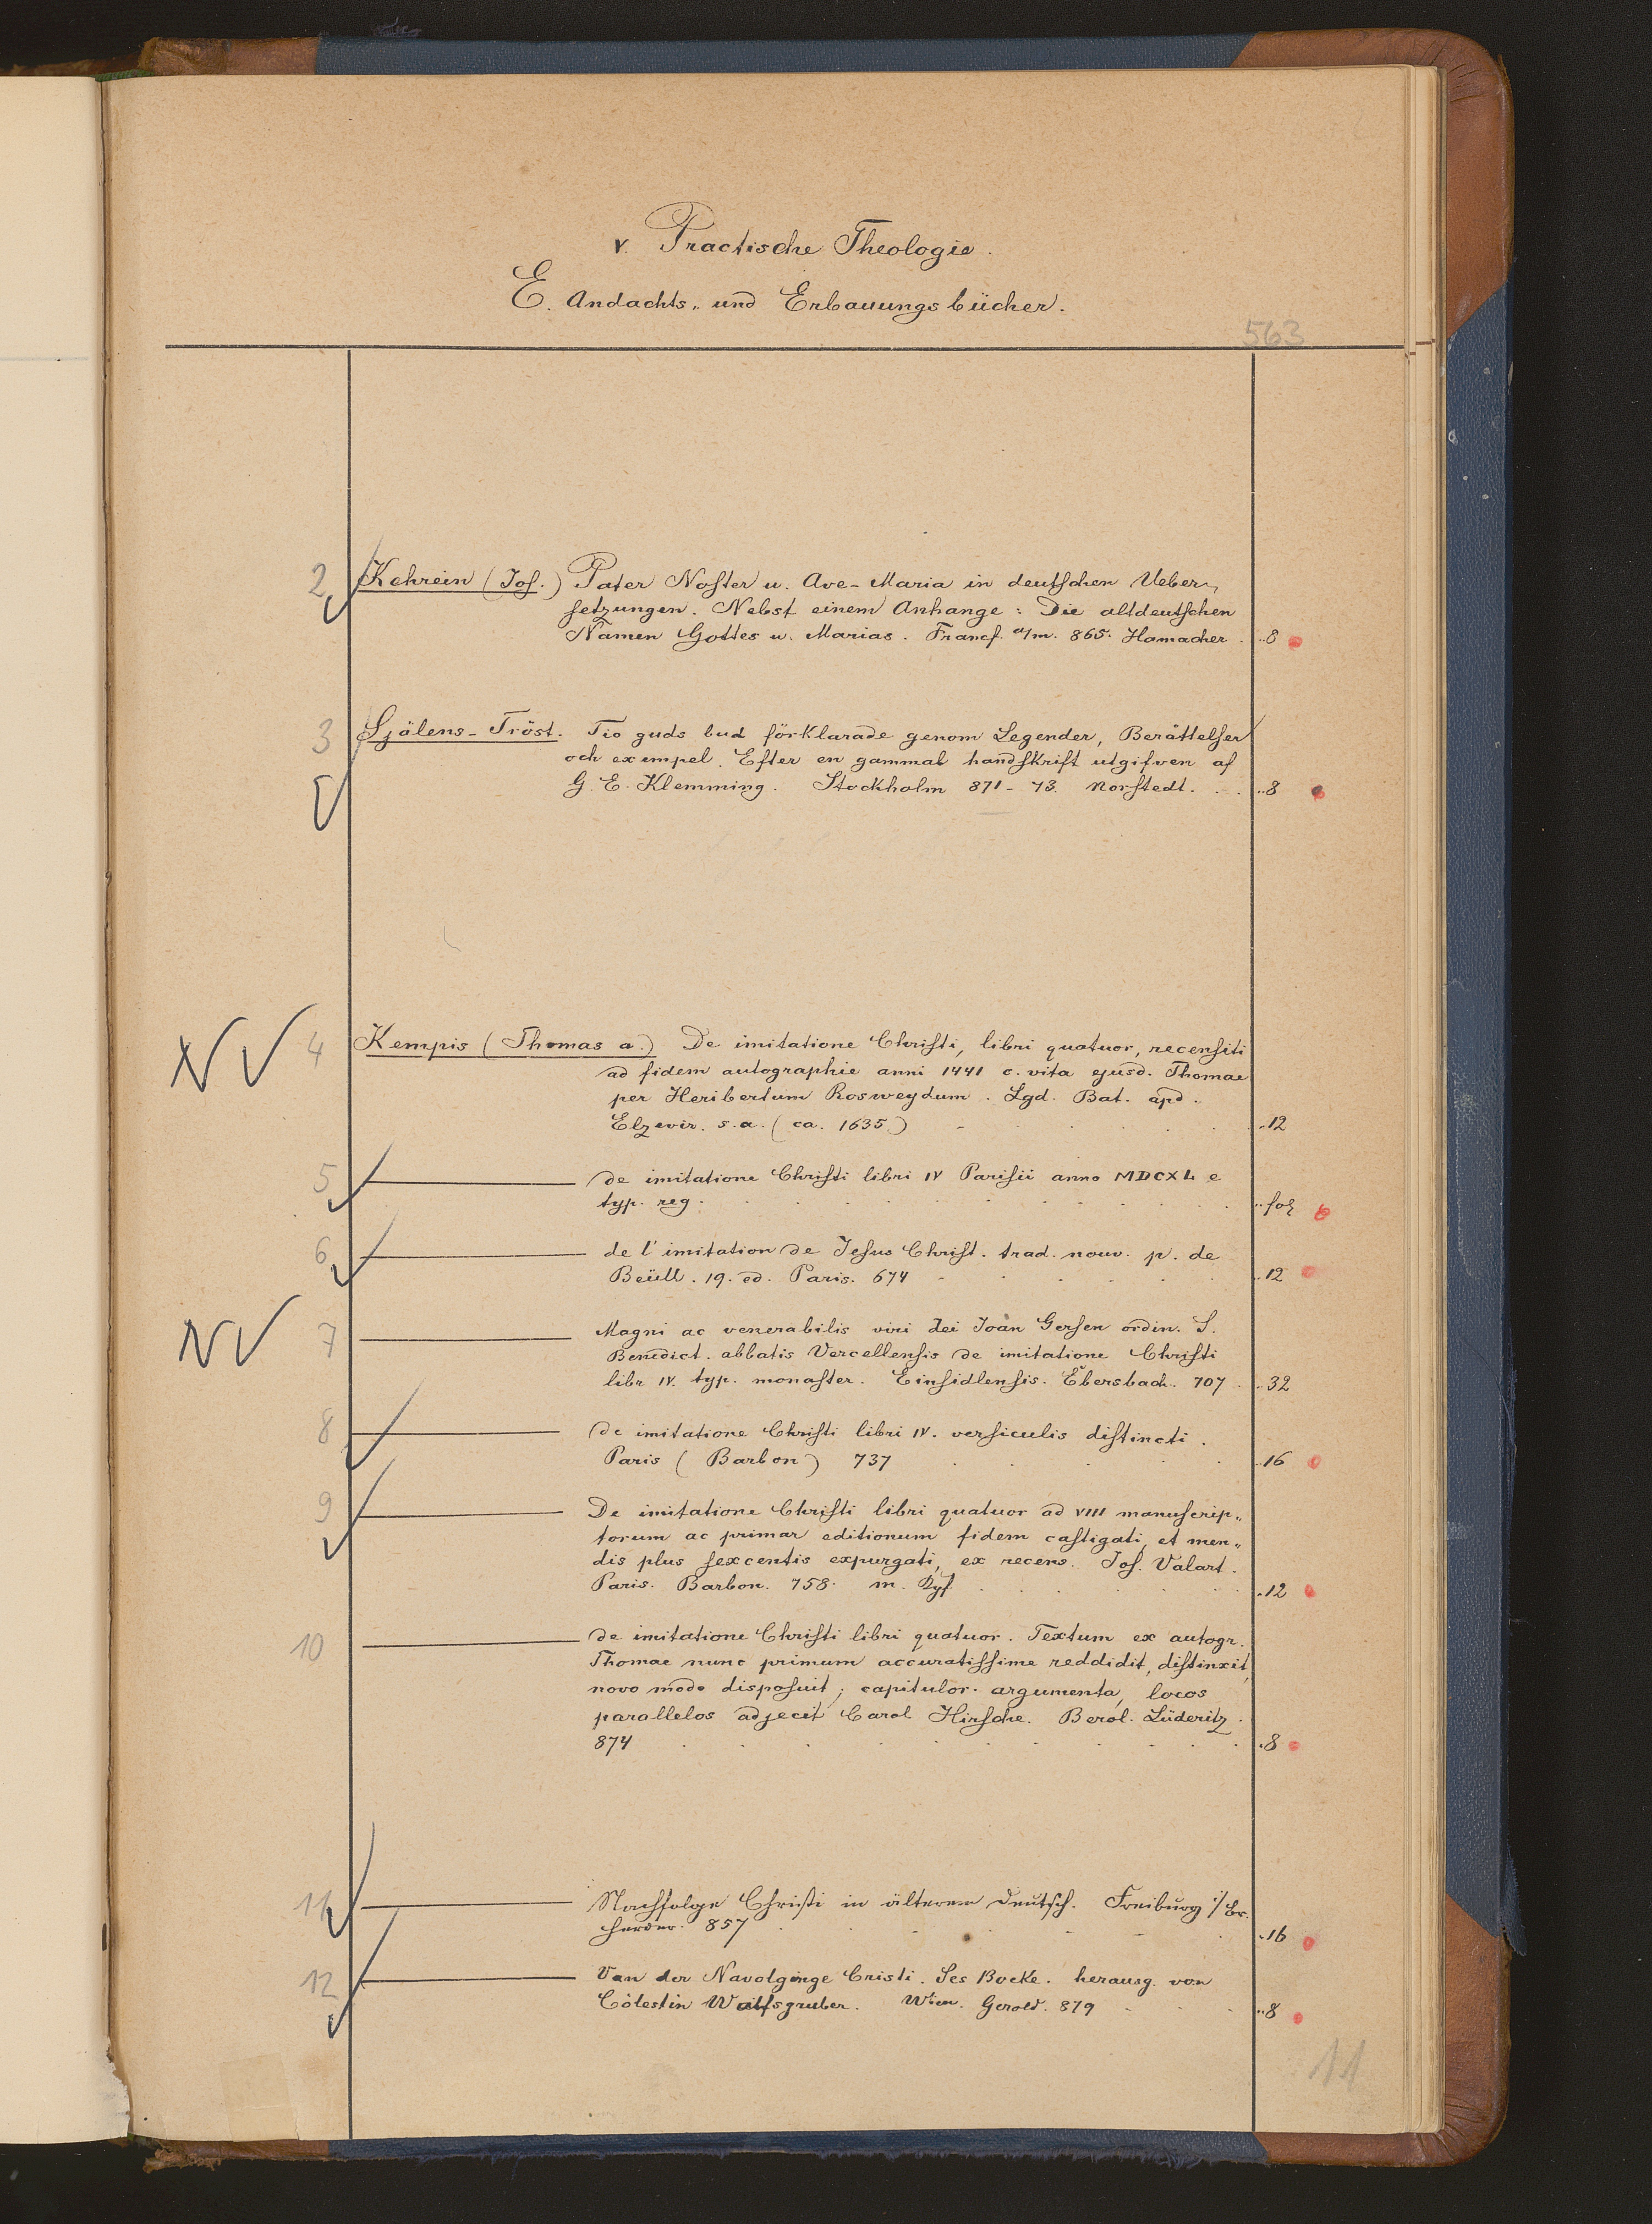 V. Practische Theologie.
E. Andachts- und Erbauungsbücher.
563
2 Kehrein (Jos.) Pater Noster u. Ave-Maria in deutschen Ueber-
setzungen. Nebst einem Anhange: Die altdeutschen
Namen Gottes u. Marias. Francf. a/m. 865. Hamacher . ..8
3 Själens-Tröst. Tio guds bud förklarade genom Legender, Berättelser
och exempel. Efter en gammal handskrift utgifven af
G. E. Klemming. Stockholm 871-73. Norstedt. . . ..8
NV 4 Kempis (Thomas a.) De imitatione Christi, libri quatuor, recensiti
ad fidem autographie anni 1441 c. vita ejusd. Thomae
per Heribertum Rosweydum. Lgd. Bat. apd.
Elzevir. s.a. (ca. 1635.) . . . . . . .12
5 ——— de imitatione Christi libri IV Parisii anno MDCXL e
typ. reg. . . . . . . . . ..fol
6 ——— de l'imitation de Jesus Christ. trad. nouv. p. de
Beüll. 19. ed. Paris. 674 . . . . . . ..12
NV 7 ——— Magni ac venerabilis viri dei Joan Gersen ordin. S.
Benedict. abbatis Vercellensis de imitatione Christi
libr IV. typ. monaster. Einsidlensis. Ebersbach. 707 . ..32
8 ——— de imitatione Christi libri IV. versiculis distincti.
Paris (Barbon) 737 . . . . . ..16
9 ——— De imitatione Christi libri quatuor ad VIII manuscrip-
torum ac primar editionum fidem castigati, et men-
dis plus sexcentis expurgati, ex recens. Jos. Valart.
Paris. Barbon. 758. m. Kpf. . . . . . . .12
10 ——— de imitatione Christi libri quatuor. Textum ex autogr.
Thomae nunc primum accuratissime reddidit, distinxit,
novo modo disposuit; capitulor. argumenta, locos
parallelos adjecit Carol Hirsche. Berol. Lüderitz.
874 . . . . . . . . . .8
11 ——— Nachfolge Christi in älterem Deutsch. Freiburg i/Br.
Herder. 857 . . . . . .16
12 ——— Van der Navolginge Cristi. Ses Boeke. herausg. von
Cölestin Wolfsgruber. Wien. Gerold. 879 . . . ..8
11